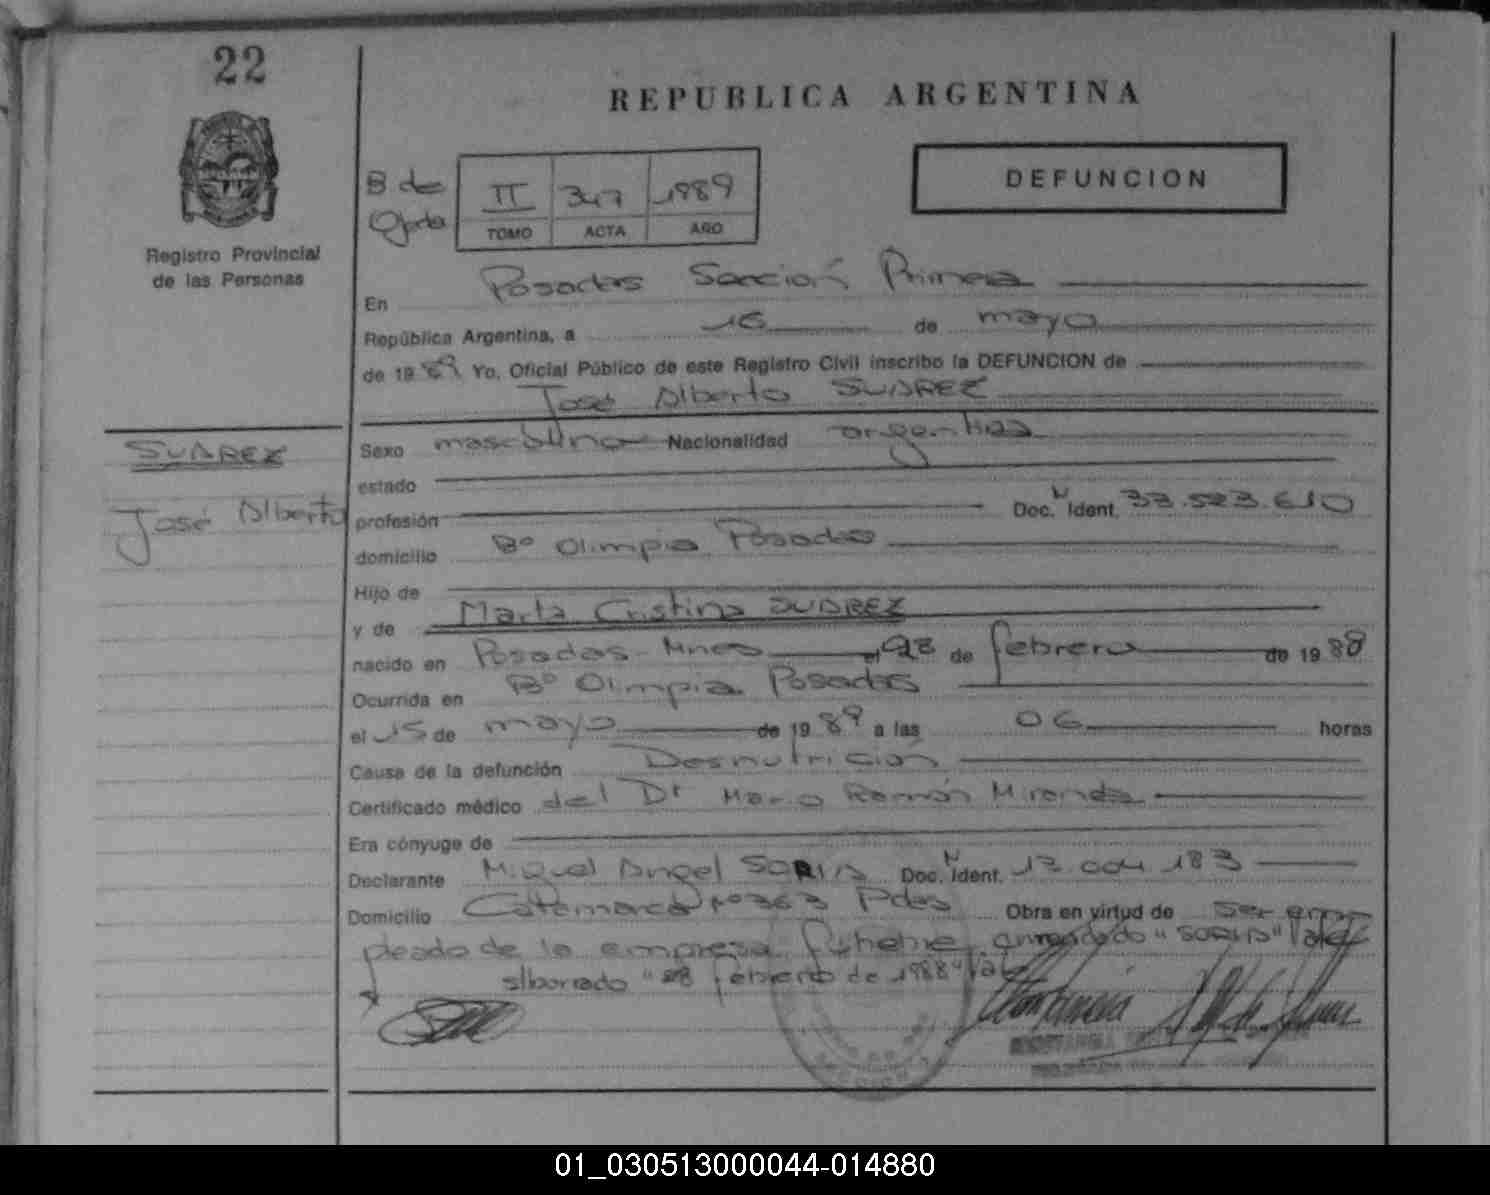 22
REPUBLICA ARGENTINA
Registro Provincial
de las Personas
B de
II 347 1989
TOMO ACTA AÑO
DEFUNCION
En Posadas Sección Primera
República Argentina, a 16 de mayo
de 1989 Yo, Oficial Público de este Registro Civil inscribo la DEFUNCION de
José Alberto SUAREZ
SUAREZ
José Alberto
Sexo masculino Nacionalidad argentina
estado
profesión Doc. N Ident. 33.523.610
domicilio Bº Olimpia Posadas
Hijo de
y de Marta Cristina SUAREZ
nacido en Posadas Mnes el 28 de febrero de 1988
Ocurrida en Bº Olimpia Posadas
el 15 de mayo de 1989 a las 06 horas
Causa de la defunción Desnutrición
Certificado médico del Dr Mario Ramón Miranda
Era cónyuge de
Declarante Miguel Angel SORIA Doc. N Ident. 13.004.183
Domicilio Catamarca Nº 363 Pdas Obra en virtud de ser em
pleado de la empresa fúnebre enmendado "SORIA" Vale
s/borrado "28 febrero de 1988" Vale
01_030513000044-014880